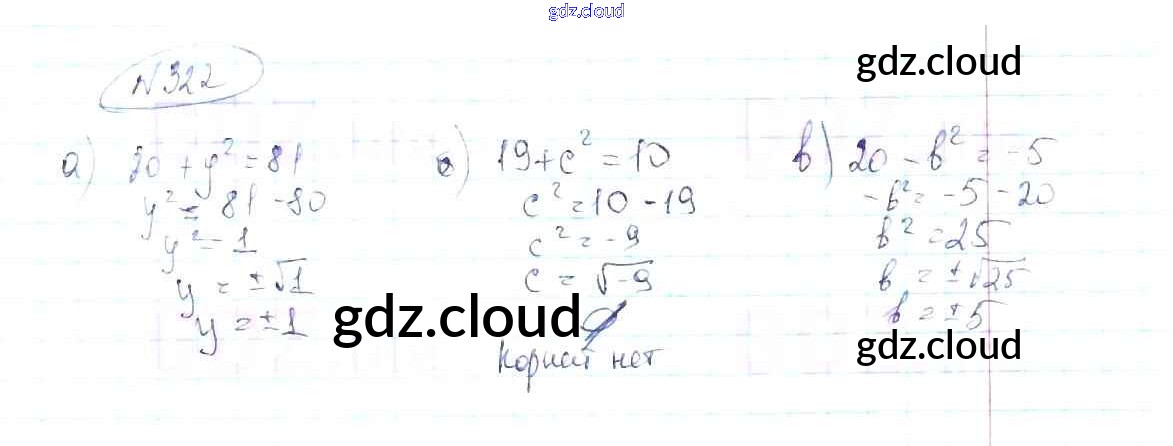 gdz.cloud
gdz.cloud
№322
а) 80 + y² = 81
y² = 81 - 80
y² = 1
y = ±√1
y = ±1
б) 19 + c² = 10
c² = 10 - 19
c² = -9
c = √-9
Корней нет
в) 20 - b² = -5
-b² = -5 - 20
b² = 25
b = ±√25
b = ±5
gdz.cloud
gdz.cloud